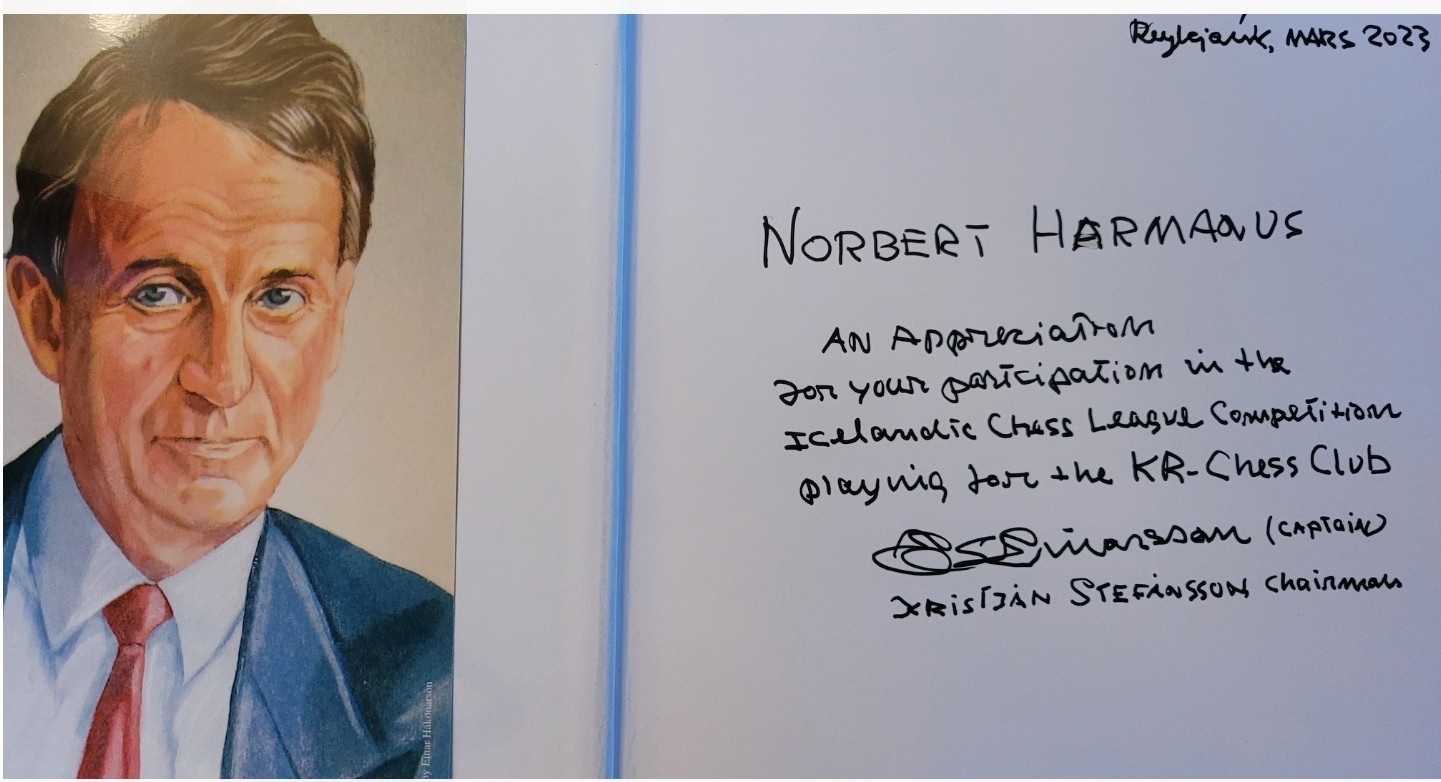 Reykjavík, MARS 2023
NORBERT HARMANUS
AN Appreciation
for your participation in the
Icelandic Chess League Competition
playing for the KR-Chess Club
Einarsson (CAPTAIN)
KRISTJÁN STEFÁNSSON chairman
by Einar Hákonarson